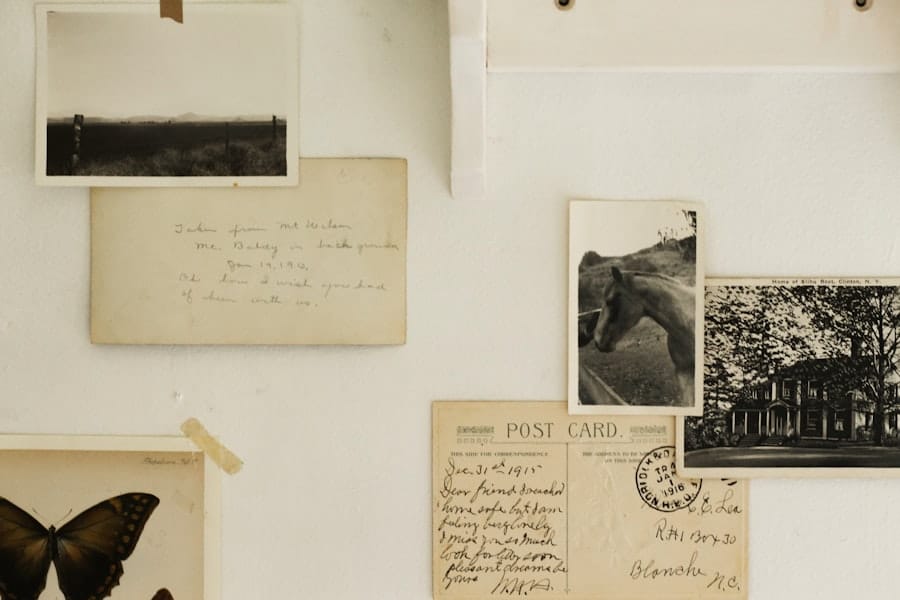 Taken from Mt Wilson
Mt. Baldy in background
Jan 19, 1913.
Oh how I wish you had
of been with us.
Home of Elihu Root, Clinton, N. Y.
POST CARD.
THIS SIDE FOR CORRESPONDENCE
THE ADDRESS TO BE
ON THIS SIDE
Dec. 31st 1915
Dear friend I reached
home safe but I am
feeling very lonely
I miss you so much
look for letter soon
pleasant dreams be
yours
TR
JAN
1916
R.P.O.
C. E. Lea
R#1 Box 30
Blanche N.C.